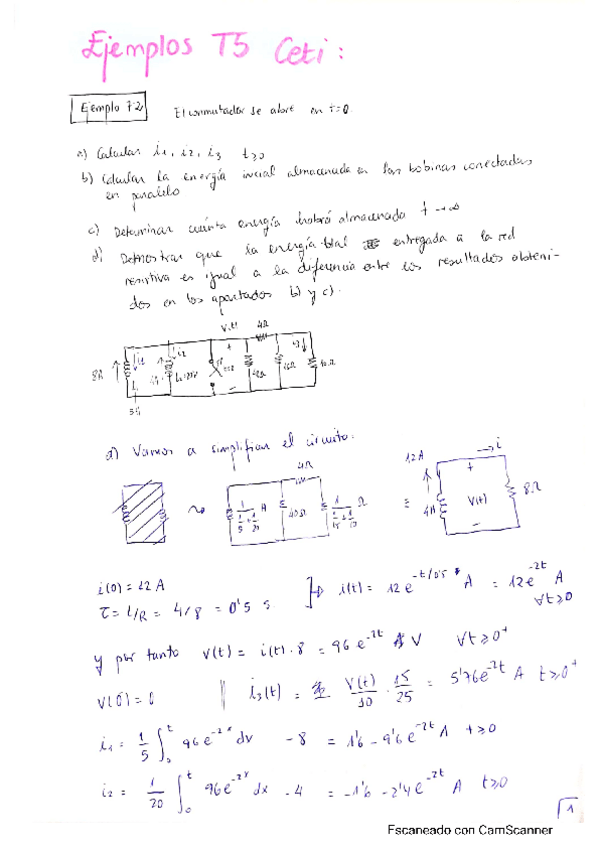 Ejemplos T5 Ceti:
Ejemplo 7.2 El conmutador se abre en t=0.
a) Calcular i1, i2, i3 t≥0
b) Calcular la energía inicial almacenada en las bobinas conectadas
en paralelo
c) Determinar cuánta energía habrá almacenada t→∞
d) Demostrar que la energía total entregada a la red
resistiva es igual a la diferencia entre los resultados obteni-
dos en los apartados b) y c).
V(t) 4Ω
8A i1 i2 i3
5H
a) Vamos a simplificar el circuito.
4Ω
12A → i
1/(1/5+1/20) 40Ω 1/(1/15+1/10) Ω ≡ 4H V(t) 8Ω
i(0) = 12 A
τ = L/R = 4/8 = 0'5 s i(t) = 12e^-t/0'5 A = 12e^-2t A
∀t≥0
y por tanto v(t) = i(t)·8 = 96e^-2t V ∀t≥0+
V(0-) = 0 i3(t) = V(t)/10 · 15/25 = 5'76e^-2t A t≥0+
i1 = 1/5 ∫0^t 96e^-2x dx - 8 = 1'6 - 9'6e^-2t A t≥0
i2 = 1/20 ∫0^t 96e^-2x dx - 4 = -1'6 - 2'4e^-2t A t≥0
1
Escaneado con CamScanner